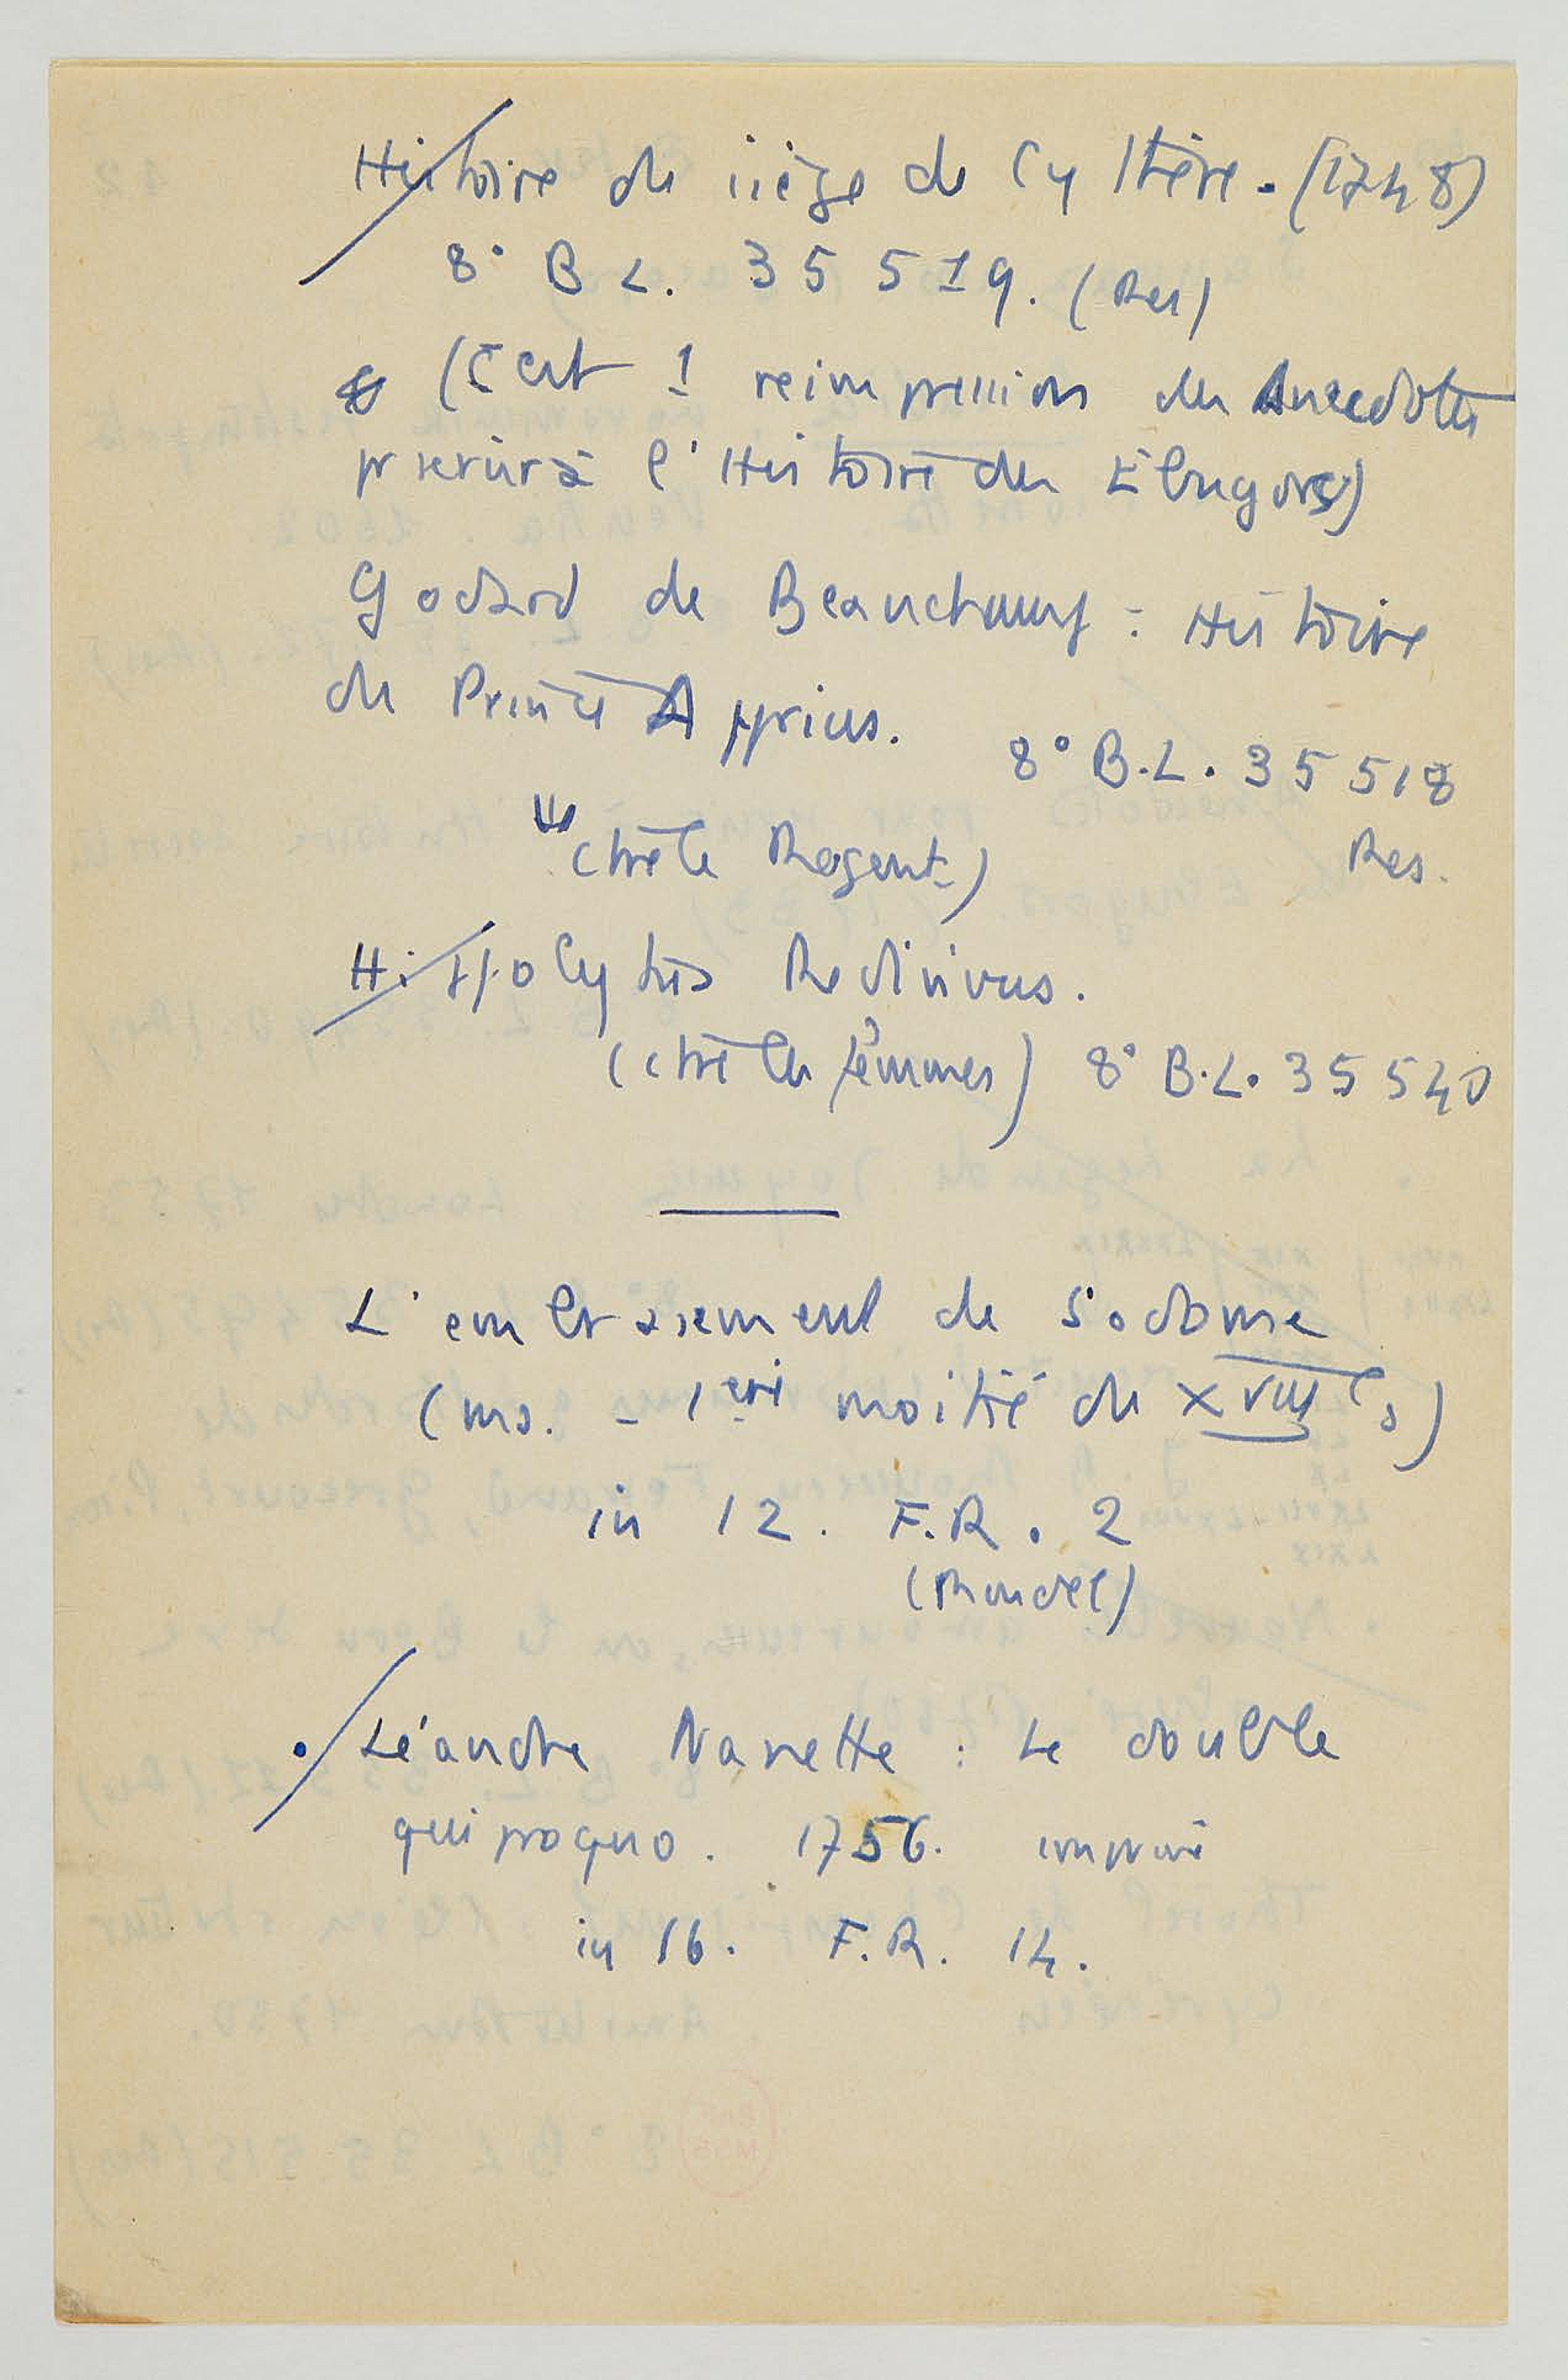 Histoire du siège de Cythère. (1748)
8° B L. 35 519. (Res)
(C'est 1 reimpression des Anecdotes
pr servir à l'Histoire des Ebugors)
Godard de Beauchamp : Histoire
du Prince Apprius.
8° B.L. 35 518
(ctre le Regent)
Res.
Hippolytus Redivivus.
(ctre les femmes) 8° B.L. 35 540
L'embrasement de Sodome
(ms. - 1ere moitié du XVIIIe s)
in 12. F.R. 2
(Rondel)
• Léandre Nanette : Le double
quiproquo. 1756. imprimé
in 16. F.R. 14.